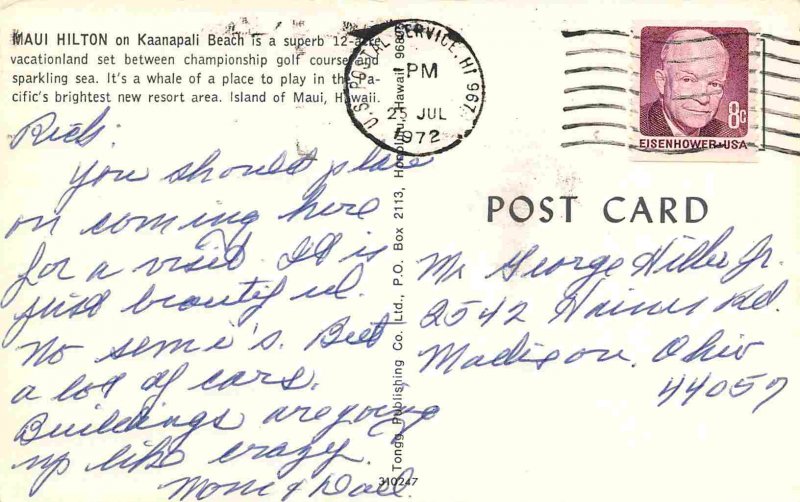 MAUI HILTON on Kaanapali Beach is a superb 12-acre
vacationland set between championship golf course and
sparkling sea. It's a whale of a place to play in the Pa-
cific's brightest new resort area. Island of Maui, Hawaii.
Rich:
You should plan
on coming here
for a visit. It is
just beautiful.
No semi's. But
a lot of cars.
Buildings are going
up like crazy.
Mom & Dad
Tongg Publishing Co., Ltd., P.O. Box 2113, Honolulu, Hawaii 96805
310247
U.S. POSTAL SERVICE, HI 967
PM
25 JUL
1972
8c
EISENHOWER·USA
POST CARD
Mr George Hiller Jr.
2542 Haines Rd.
Madison, Ohio
44057